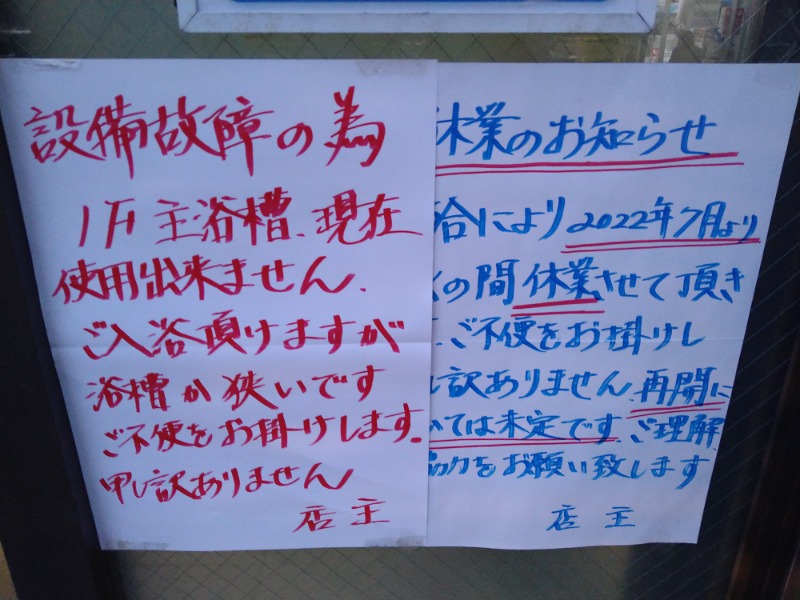 設備故障の為
1F主浴槽、現在
使用出来ません、
ご入浴頂けますが
浴槽が狭いです
ご不便をお掛けします。
申し訳ありません
店主
休業のお知らせ
合により2022年7月より
の間休業させて頂き
ご不便をお掛けし
し訳ありません再開に
いては未定ですご理解
協力をお願い致します
店主